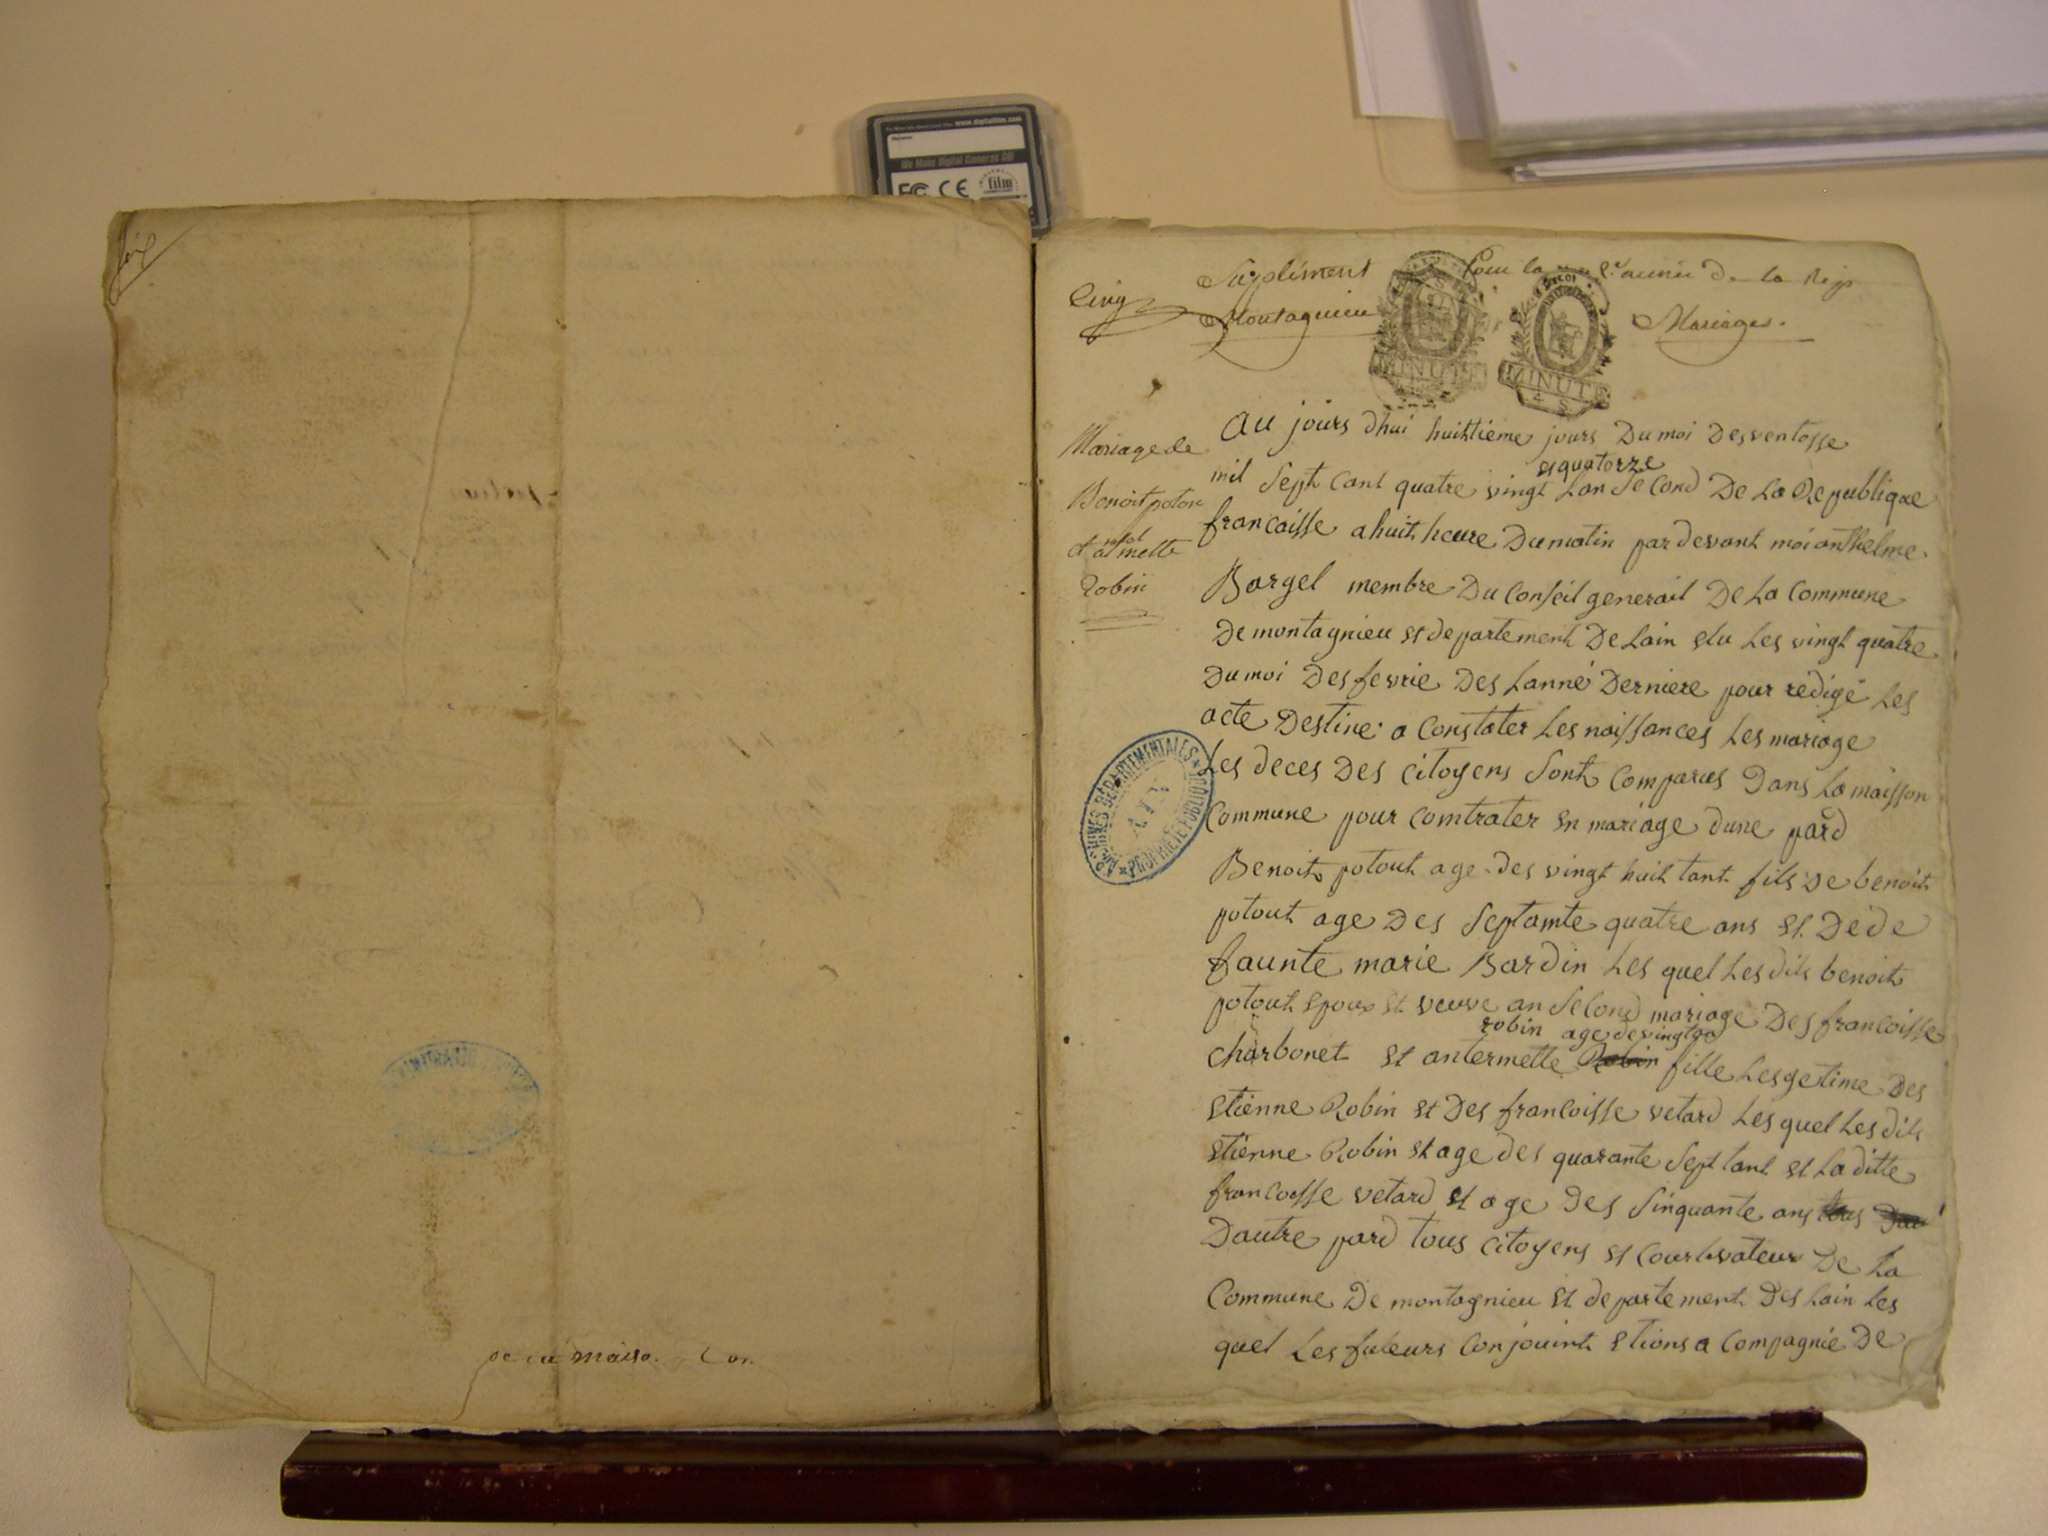 www.digitalfilm.com
We Make Digital Cameras Go!
FC CE film
six
pe la maiso
Cinq
Suplément Pour la 2.e année de la Rep
Montagnieu Mariages.
MINUTE
MINUTE
4 S
Mariage de
Benoit poton
et antmette
robin
ARCHIVES DÉPARTEMENTALES
AIN
PROPRIÉTÉ PUBLIQUE
au jours dhui huittieme jours Du moi Des ventosse
esquatorze
mil Sept Cant quatre vingt Lan Second De La Republique
francaisse a huit heure Du matin par devant moi anthelme
Bargel membre Du Conseil generail De La Commune
De montagnieu et departement De Lain elu Les vingt quatre
Du moi Des fevrie Des Lanné Derniere pour redigé Les
acte Destine a Constater Les naissances Les mariage
Les deces Des Citoyens Sont Comparus Dans La maisson
Commune pour Comtrater en mariage dune pard
Benoit potout age des vingt huit tant fils De benoit
potout age Des Septamte quatre ans et De de
faunte marie Bardin Les quel Les dits benoit
potout epoux et veuve an Second mariage Des francoisse
robin age de vingt
Charbonet et antermette Robin fille Lesgetime Des
etienne Robin et Des francoisse vetard Les quel Les dits
etienne Robin et age des quarante Sept tant et La ditte
francoisse vetard et age Des Sinquante ans tous
Dautre pard tous Citoyens et Courtivateur De La
Commune De montagnieu et departement Des Lain Les
quel Les futeurs Conjouint etions a Compagnie De